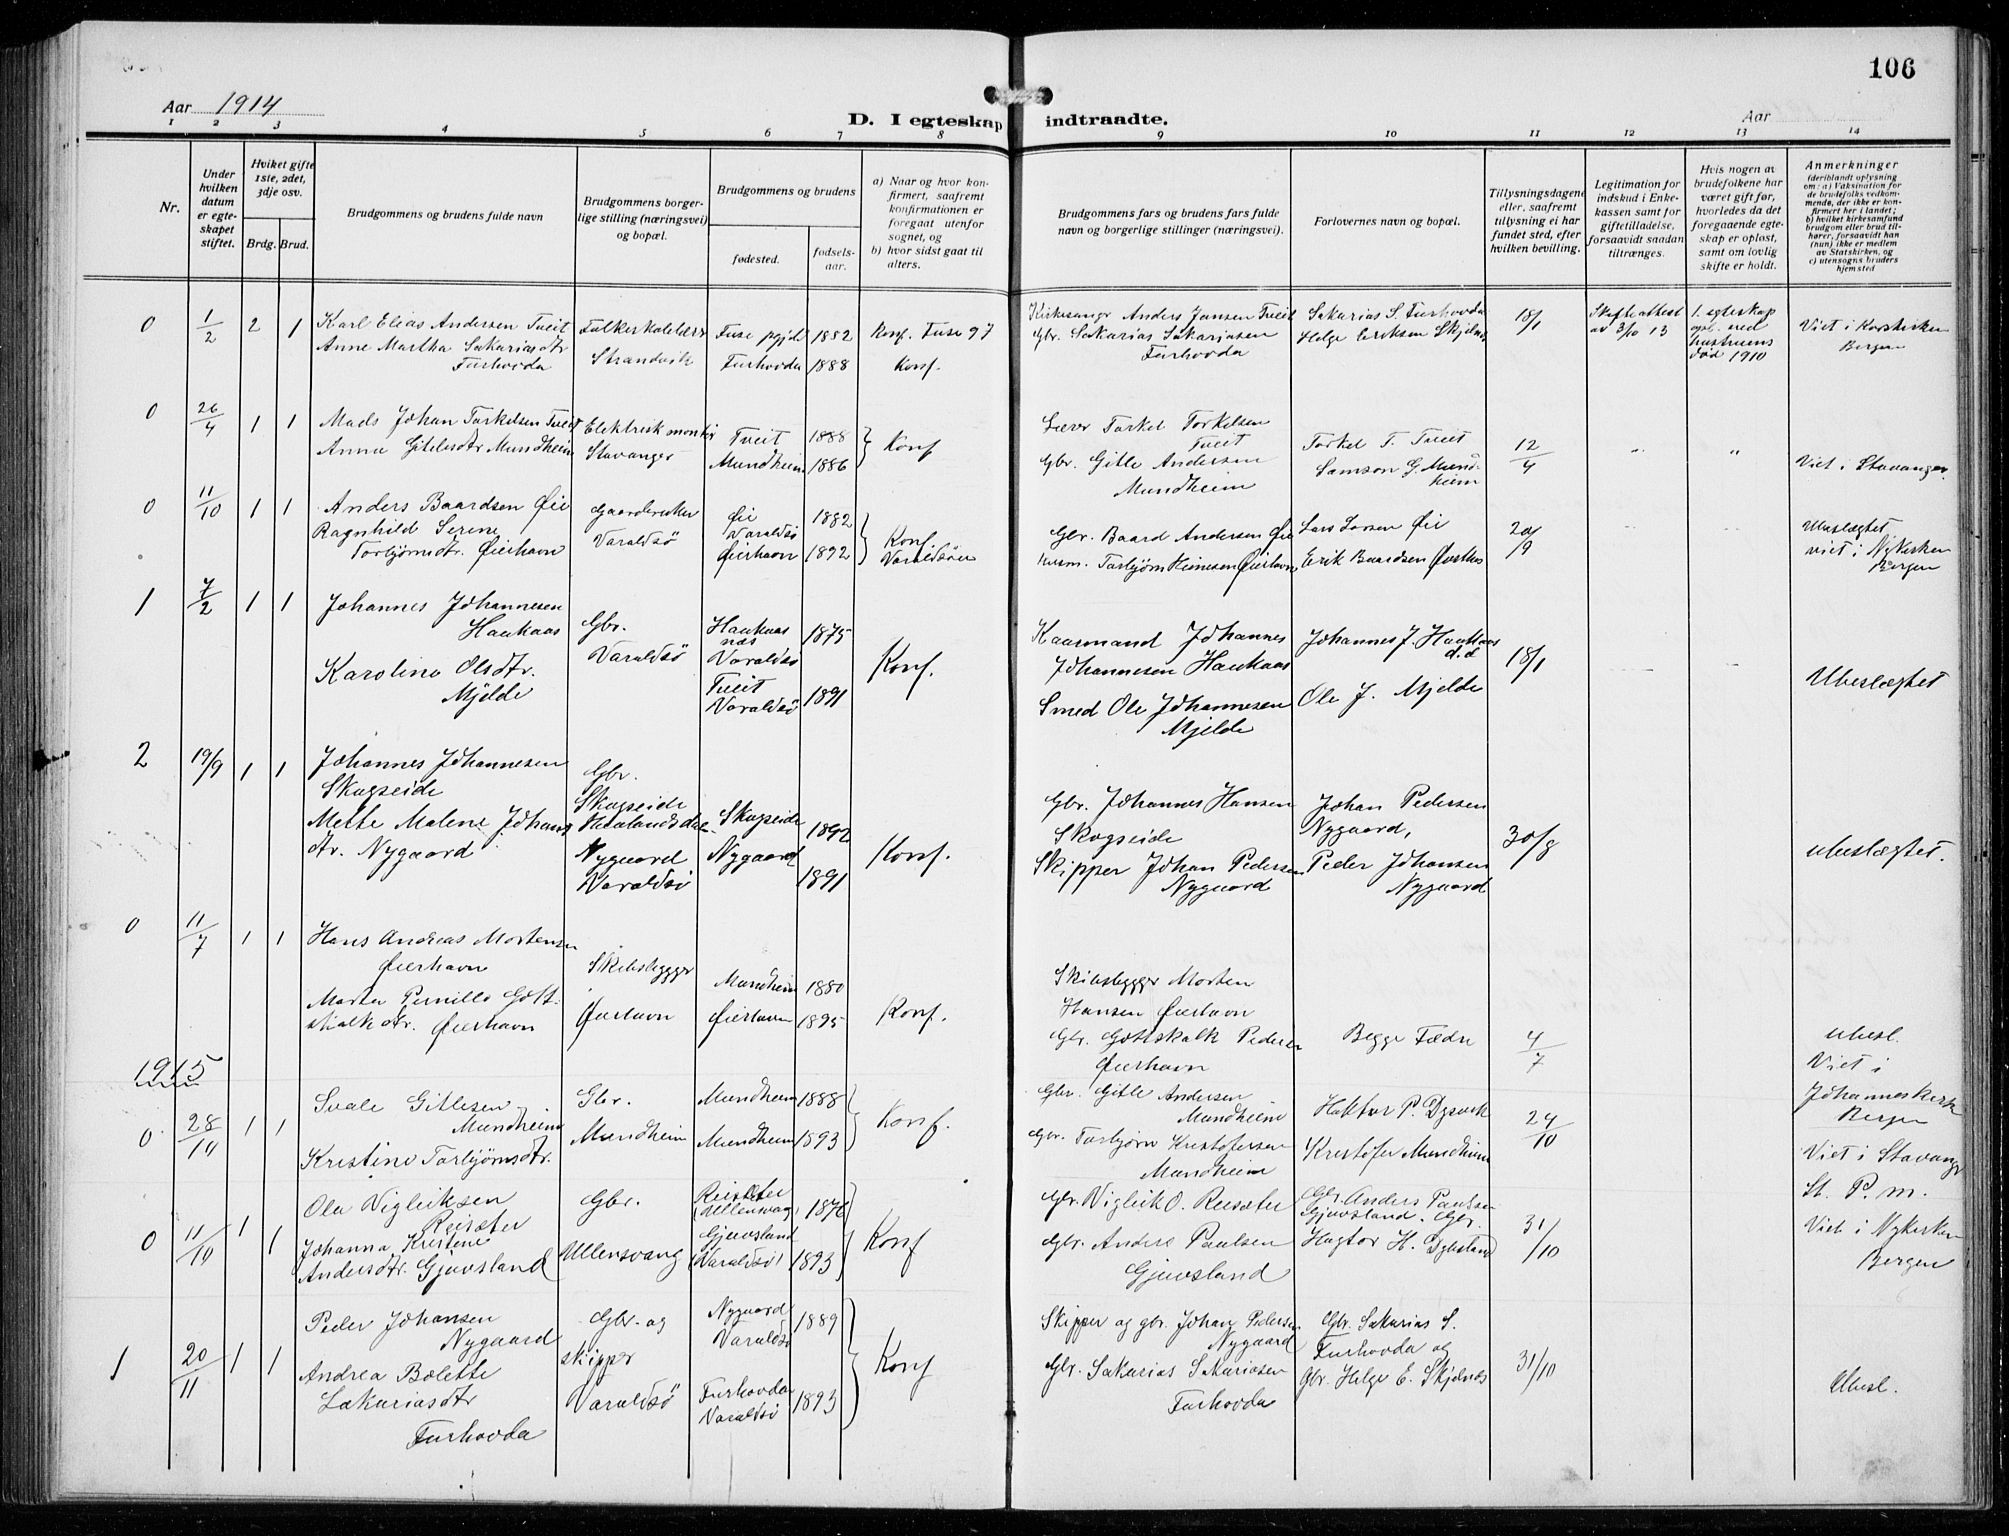 106
Aar 1914
D. I egteskap indtraadte.
Aar
1 2 3 4 5 6 7 8 9 10 11 12 13 14
Nr.
Under hvilken datum er egteskapet stiftet.
Hvilket gifte 1ste, 2det, 3dje osv.
Brdg. Brud.
Brudgommens og brudens fulde navn
Brudgommens borgerlige stilling (næringsvei) og bopæl.
Brudgommens og brudens
fødested.
fødselsaar.
a) Naar og hvor konfirmert, saafremt konfirmationen er foregaat utenfor sognet, og
b) hvor sidst gaat til alters.
Brudgommens fars og brudens fars fulde navn og borgerlige stillinger (næringsvei).
Forlovernes navn og bopæl.
Tillysningsdagene eller, saafremt tillysning ei har fundet sted, efter hvilken bevilling.
Legitimation for indskud i Enkekassen samt for giftetilladelse, forsaavidt saadan tiltrænges.
Hvis nogen av brudefolkene har været gift før, hvorledes da det foregaaende egteskap er opløst, samt om lovlig skifte er holdt.
Anmerkninger
(deriblandt oplysning om: a) Vaksination for de brudefolks vedkommende, der ikke er konfirmert her i landet; b) hvilket kirkesamfund brudgom eller brud tilhører, forsaavidt han (hun) ikke er medlem av Statskirken, og c) utensogns bruders hjemsted
0 1/2 2 1 Karl Elias Andersen Tveit
Anne Martha Sakariasdtr
Furhovda
Strandvik
Fuse pgjd 1882
Furhovda 1888
Konf. Fuse 97
Konf.
Kirkesanger Anders Jansen Tveit
Gbr. Sakarias Sakariasen
Furhovda
Sakarias S. Furhovda
Helge Eriksen Skjelnes
18/1
Skifteattest
av 3/10 13
1. egteskap
opl. ved
hustruens
død 1910
Viet i Korskirken
Bergen
0 26/4 1 1 Mads Johan Torkelsen Tveit
Anna Gitlesdtr Mundheim
Elektrisk montør
Stavanger
Tveit 1888
Mundheim 1886
Konf
Lærer Torkel Torkelsen
Tveit
Gbr. Gitle Andersen
Mundheim
Torkel T. Tveit
Samson G. Mundheim
12/4
" "
Viet i Stavanger
0 11/10 1 1 Anders Baardsen Øie
Ragnhild Serene
Torbjørnsdtr. Øierhavn
Gaardbruker
Varaldsö
Øie
Varaldsö 1882
Øierhavn 1892
Konf.
Varaldsöen
Gbr. Baard Andersen Øie
Husm. Torbjørn Heinesen Øierhavn
Lars Larsen Øie
Erik Baardsen
20/9
Ubeslægtet
viet i Nykirken
Bergen
1 7/2 1 1 Johannes Johannesen
Haukaas
Karoline Olsdtr.
Mjelde
Gbr.
Varaldsö
Haukaas
næs 1875
Varaldsö
Tveit
Varaldsö 1891
Konf.
Kaarmand Johannes
Johannesen Haukaas
Smed Ole Johannesen
Mjelde
Johannes J. Haukaas
d.e
Ole J. Mjelde
18/1
Ubeslægtet
2 19/9 1 1 Johannes Johannesen
Skogseide
Mette Malene Johansdtr. Nygaard
Gbr.
Skogseide
Nygaard
Varaldsö
Skogseide 1892
Nygaard 1891
Konf.
Gbr. Johannes Hansen
Skogseide
Skipper Johan Pedersen
Nygaard
Johan Pedersen
Nygaard,
Peder Johansen
Nygaard
30/8
ubeslægtet.
0 11/7 1 1 Hans Andreas Mortensen
Øierhavn
Marta Pernille Gottskalkdtr. Øierhavn
Skibsbygger
Øierhavn
Mundheim 1880
Øierhavn 1895
Konf.
Skibsbygger Morten
Hansen Øierhavn
Gbr. Gottskalk Pedersen
Øierhavn
Begge Fædre
4/7
ubesl.
Viet i
Johanneskirk
Bergen
1915
0 28/10 1 1 Svale Gitlesen
Mundheim
Kristine Torbjørnsdtr.
Gbr.
Mundheim
Mundheim 1888
Mundheim 1893
Konf.
Gbr. Gitle Andersen
Mundheim
Gbr. Torbjørn Kristofersen
Mundheim
Haktor P. Dysvik
Kristofer Mundheim
24/10
Viet i Stavanger
St. P. m.
0 11/10 1 1 Ola Vigleiksen
Reisæter
Johanna Kristine
Andersdtr. Gjuvsland
Gbr.
Ullensvang
Reisæter
(Ullensvang) 1876
Gjuvsland
(Varaldsö) 1893
Konf
Gbr. Vigleik O. Reisæter
Gbr. Anders Paulsen
Gjuvsland
Gbr. Anders Paulsen
Gjuvsland. Gbr.
Hagtor H.
31/10
Viet i Nykirken
Bergen
1 20/11 1 1 Peder Johansen
Nygaard
Andrea Bolette
Sakariasdtr
Furhovda
Gbr. og
skipper
Varaldsö
Nygaard
Varaldsö 1889
Furhovda
Varaldsö 1893
Konf
Skipper og gbr. Johan Pedersen
Nygaard
Gbr. Sakarias Sakariasen
Furhovda
Gbr. Sakarias S.
Furhovda og
Gbr. Helge E. Skjelnes
31/10
Ubesl.